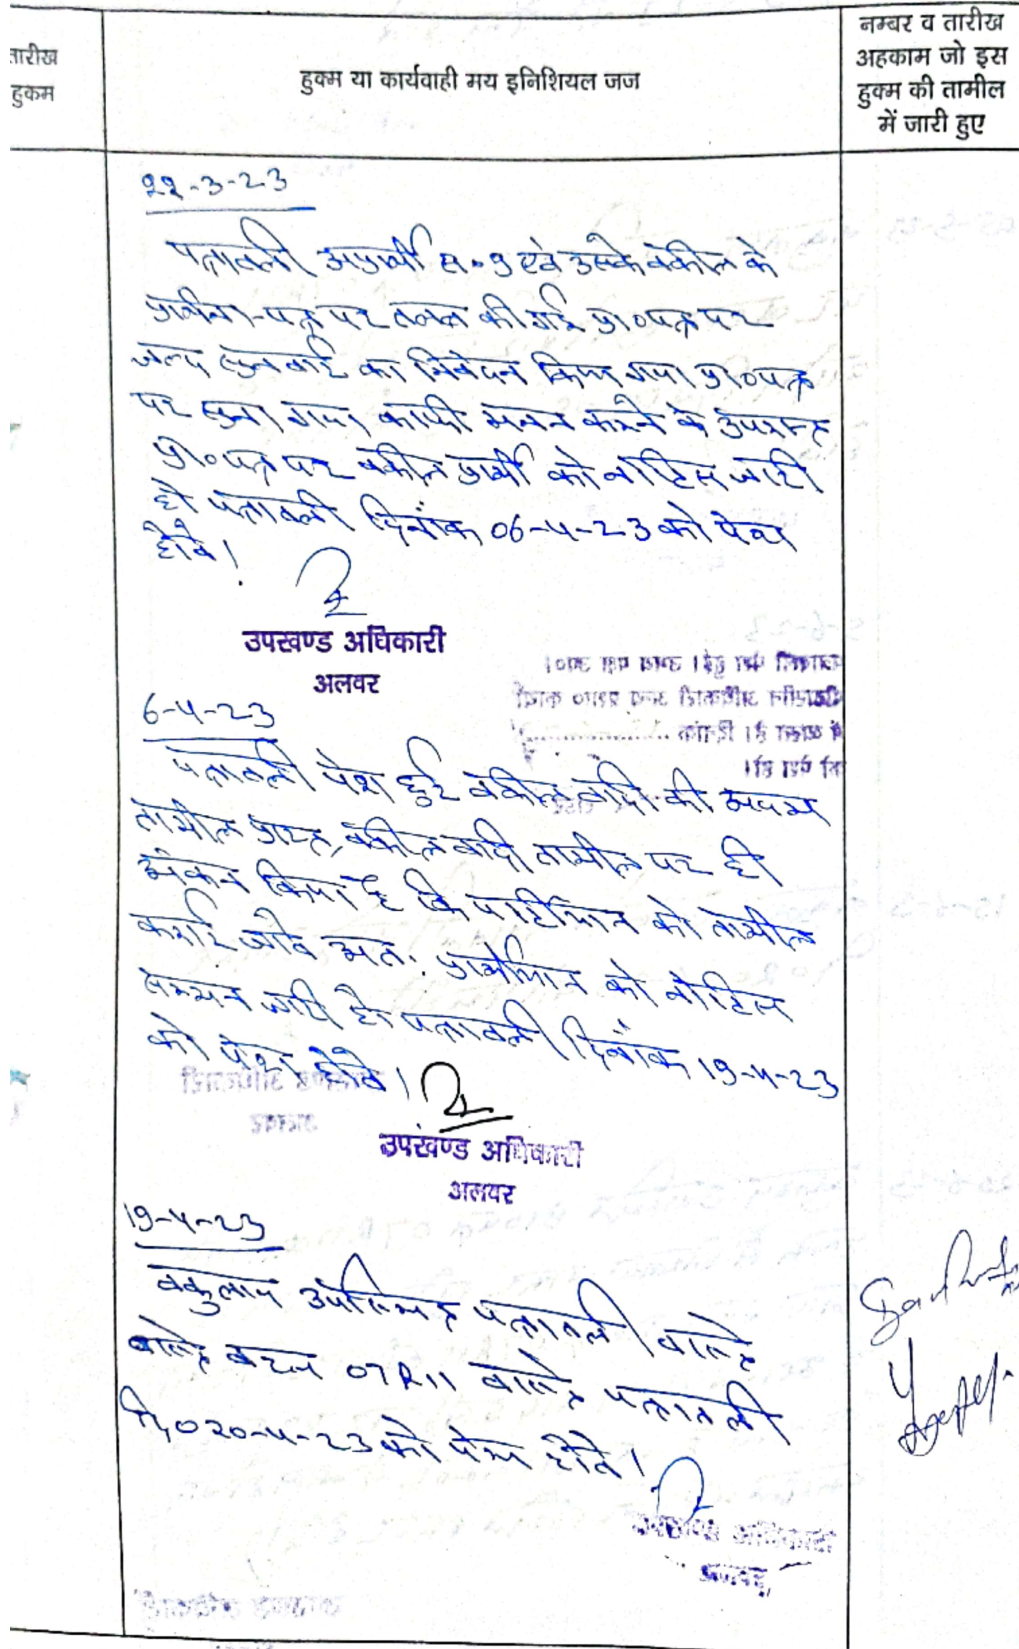 तारीख
हुकम
हुक्म या कार्यवाही मय इनिशियल जज
नम्बर व तारीख
अहकाम जो इस
हुक्म की तामील
में जारी हुए
22-3-23
पत्रावली अप्रार्थी सं० 9 एवं उसके वकील के
प्रार्थना-पत्र पर तलब की गई प्रा०पत्र पर
जल्द सुनवाई का निवेदन किया गया प्रा०पत्र
पर सुना गया काफी मनन करने के उपरान्त
प्रा०पत्र पर वकील प्रार्थी को नोटिस जारी
हो पत्रावली दिनांक 06-4-23 को पेश
होवे।
उपखण्ड अधिकारी
अलवर
6-4-23
पत्रावली पेश हुई वकील वादी की
तामील प्राप्त, वकील वादी तामील पर ही
अंकन किया है कि पार्टीयान को तामील
कराई जावे अतः प्रार्थीयान को नोटिस
सम्मन जारी हो पत्रावली दिनांक 19-4-23
को पेश होवे।
उपखण्ड अधिकारी
अलवर
19-4-23
वकुलाय उपस्थित पत्रावली वास्ते
वास्ते बहस 07R11 वास्ते पत्रावली
दि० 20-4-23 को पेश होवे।
उपखण्ड अधिकारी
अलवर